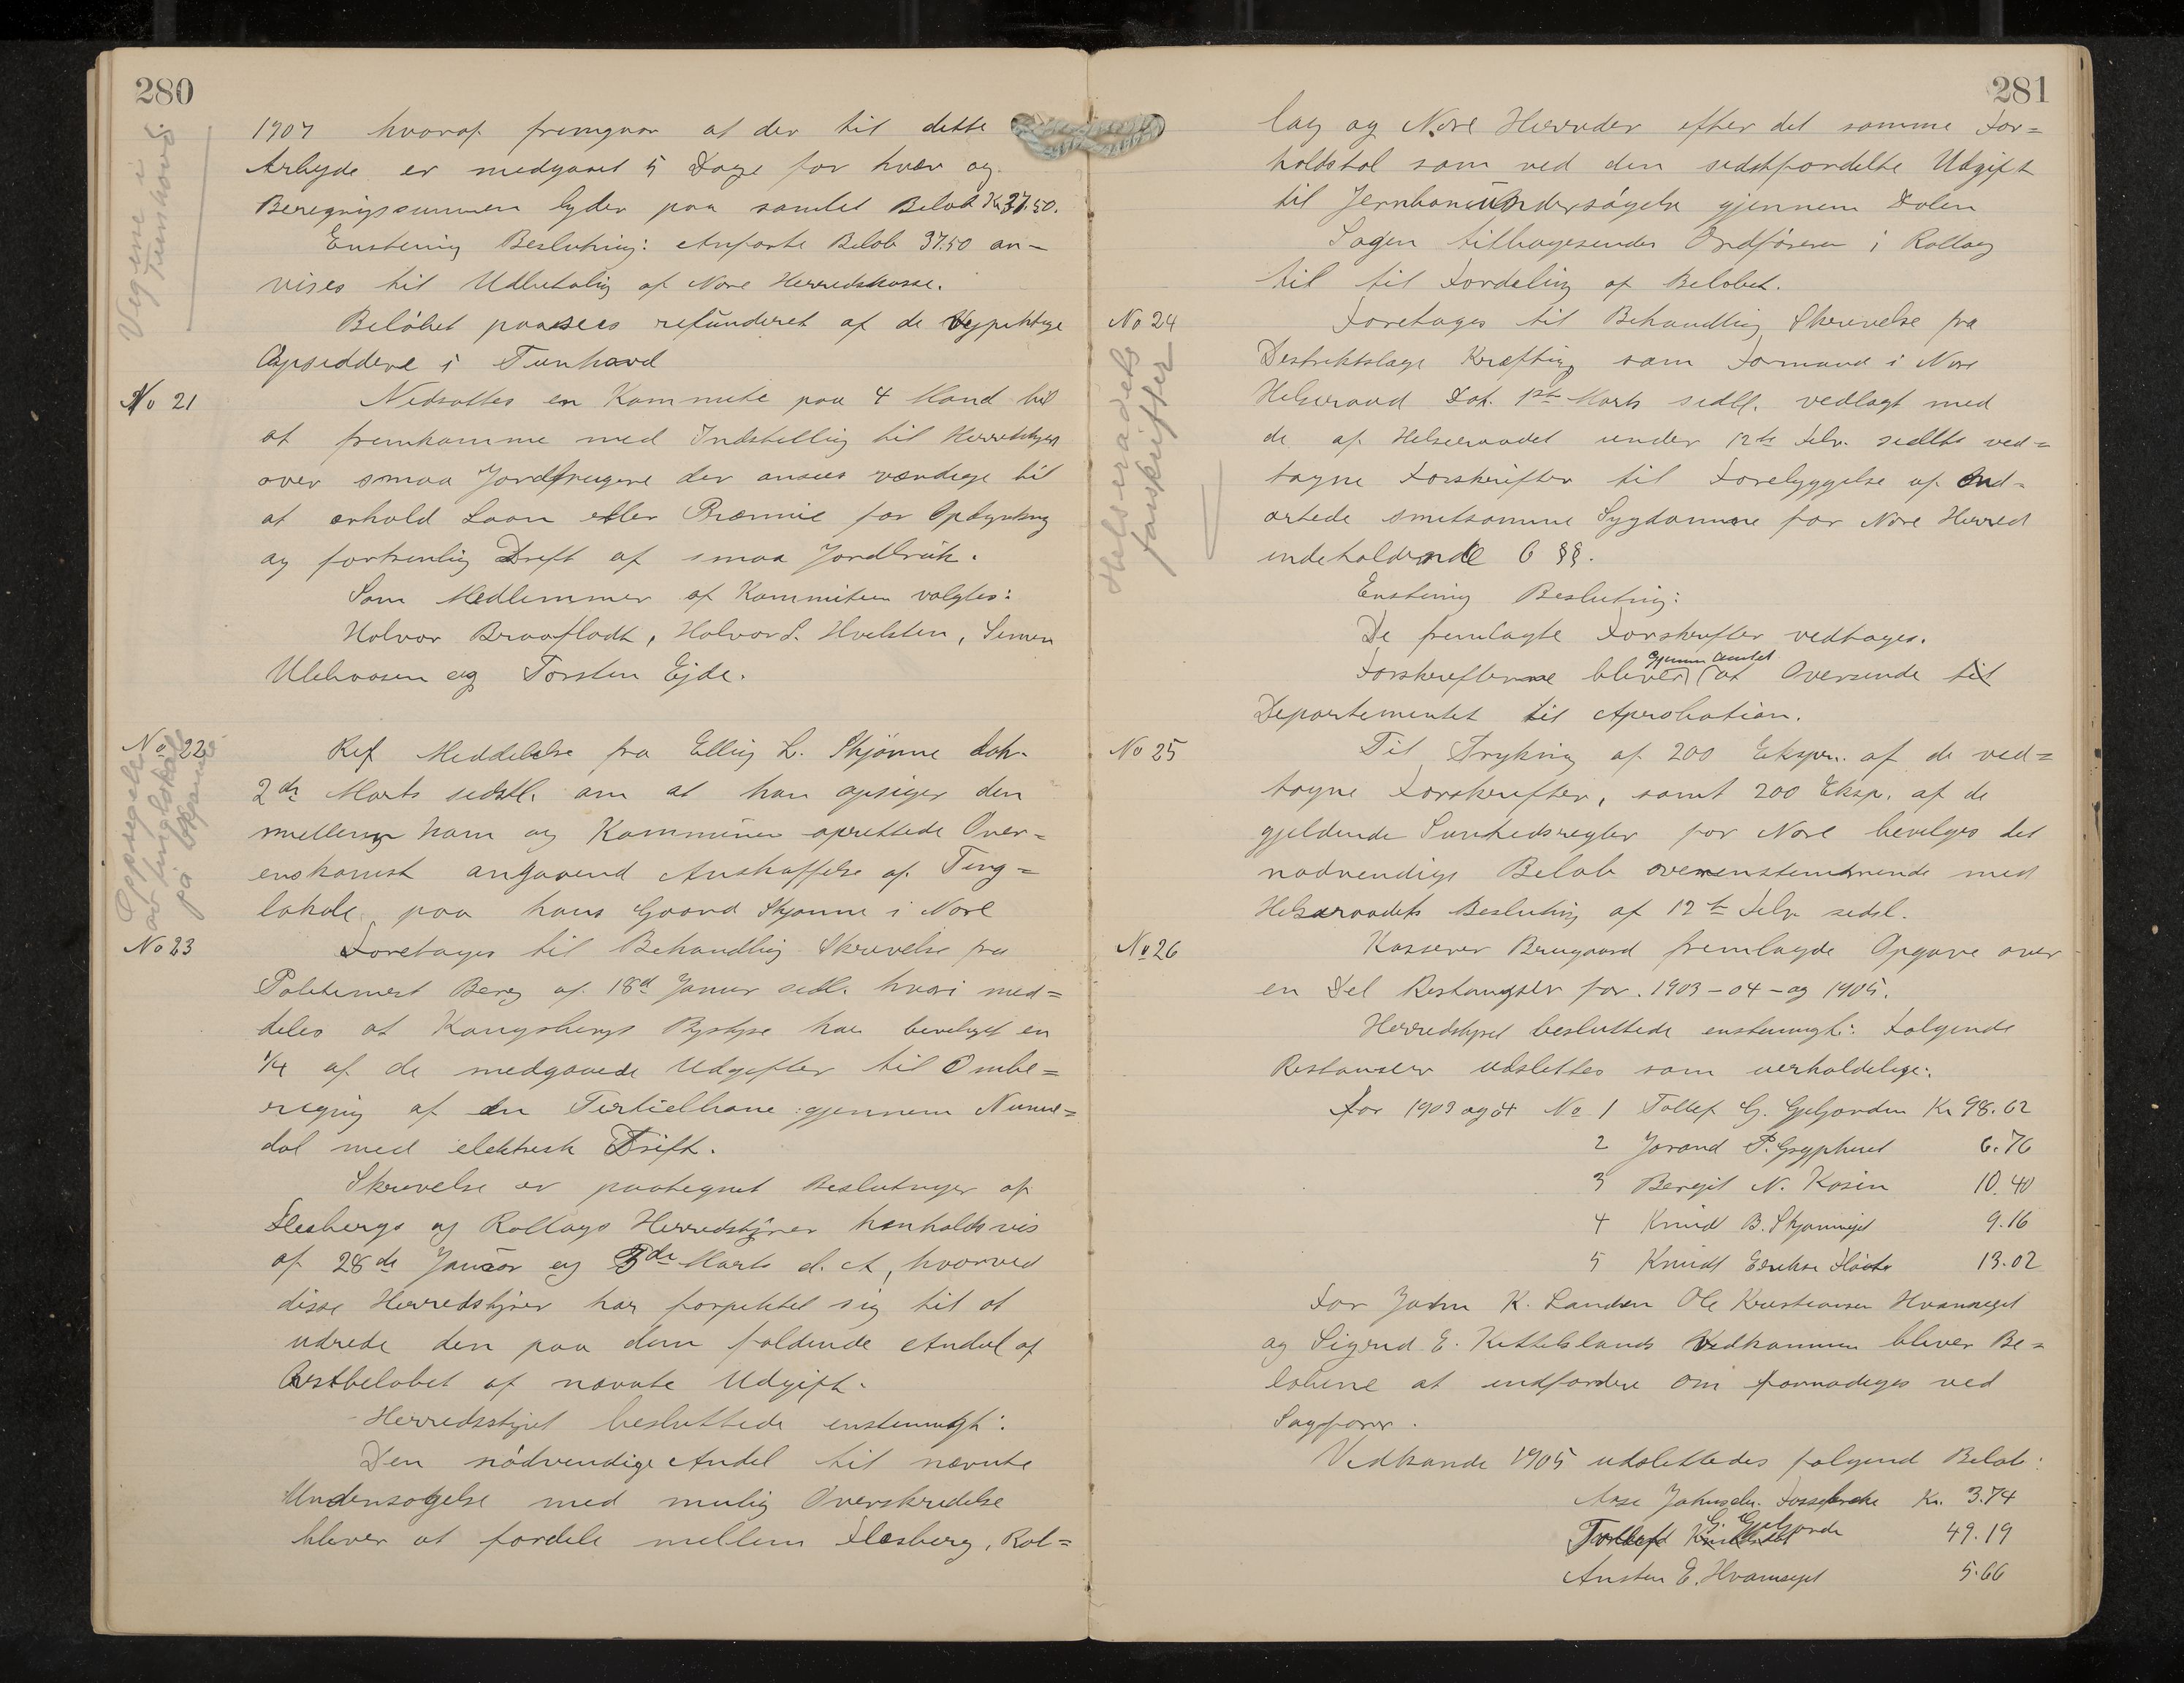 280
1907 hvoraf fremgaar at der til dette
Arbeyde er medgaaet 5 Dage for hver og
Beregnigssummen lyder paa samlet Beløb Kr 37.50.
Enstemig Beslutnig: Anførte Beløb 37.50 an-
vises til Udbetalig af Nore Herredskasse.
Beløbet paasees refunderet af de Vejpliktige
Opsiddere i Tunhovd
Vegene i Tunhovd
No 21
Nedsattes en Kommite paa 4 Mand til
at fremkomme med Indstellig til Herredstyret
over smaa Jordbrugere der ansees værdige til
at erhold Laan eller Præmie for Opdyrkng
og fortrinlig Drift af smaa Jordbruk.
Som Medlemmer af Kommiteen valgtes:
Halvor Braaflodt, Halvor S. Hvelsten, Simen
Ulehvasen og Torsten Ejde.
No 22
Oppsigelse av tinglokale på Skjønne
Ref Meddelelse fra Ellig L. Skjønne dat.
2de Marts sidstl. om at han opsiger den
mellem ham og Kommunen oprettede Over=
enskomst angaaend Anskaffelse af Ting=
lokale paa hans Gaard Skjønne i Nore
No 23
Foretages til Behandlig Skrivelse fra
Politimest Berg af 18d Januar sidl. hvori med=
deles at Kongsbergs Bystyre har bevilget en
1/4 af de medgaaede Udgifter til Ombe=
regnig af en Tertielbane gjennem Numme=
dal med elektrisk Drift.
Skrivelse er paategnet Beslutniger af
Flesbergs og Rollags Herredstyrer henholdsvis
af 28de Januar og 5de Marts d. A, hvorved
disse Herredstyrer har forpliktet sig til at
udrede den paa dem faldende Andel af
Restbeløbet af nævnte Udgift.
Herredsstyret besluttede enstemmigh:
Den nødvendige Andel til nævnte
Undersøgelse med mulig Overskridelse
bliver at fordele mellem Flesberg, Rol=
281
lag og Nore Herreder efter det samme For=
holdstal som ved den sidstfordelte Udgift
til Jernbaneundersøgelse gjennem Dalen
Sagen tilbagesendes Ordføreren i Rollag
til til Fordeling af Beløbet.
No 24
Helserådets forskrifter
Foretages til Behandlig Skrivelse fra
Destriktslæge Krefting som Formand i Nore
Helseraad Dat. 1ste Marts sidtl. vedlagt med
de af Helseraadet under 12te Febr. sidtls ved=
tagne Forskrifter til Forebyggelse af Ond-
artede smetsomme Sygdomme for Nore Herred
indeholdende 6 §§.
Enstemig Beslutnig:
De fremlagte Forskrifter vedtages.
Forskrifterne bliver gjennem Amtet at Oversende til
Departementet til Aprobation.
No 25
Til Trykning af 200 Ekspr. af de ved=
tagne Forskrifter, samt 200 Eksp. af de
gjeldende Sunhedsregler for Nore bevilges det
nødvendige Beløb overenstemmende med
Helseraadets Beslutnig af 12te Febr sidsl.
No 26
Kasserer Bruugaard fremlagde Opgave over
en Del Restangser for. 1903-04-og 1905.
Herredstyret besluttede enstemmigh: Følgende
Restanser udslettes som uerholdelige:
for 1903 og 04 No 1 Tollef G. Gjeljorden Kr 98.62
2 Jorand P. 6.76
3 Bergit N. Kosin 10.40
4 Knud B. Skjønnejet 9.16
5 Knudt 13.02
For K. Landen Ole Kristiansen Hvamseget
og Sigrid E. Kittelslands Vedkommen bliver Be=
løbene at indfordre om fornødeges ved
Sagfører.
Vedkande 1905 udslettedes følgend Beløb:
Kr. 3.74
G. Gjeljorde 49.19
Austen E. Hvamseget 5.66